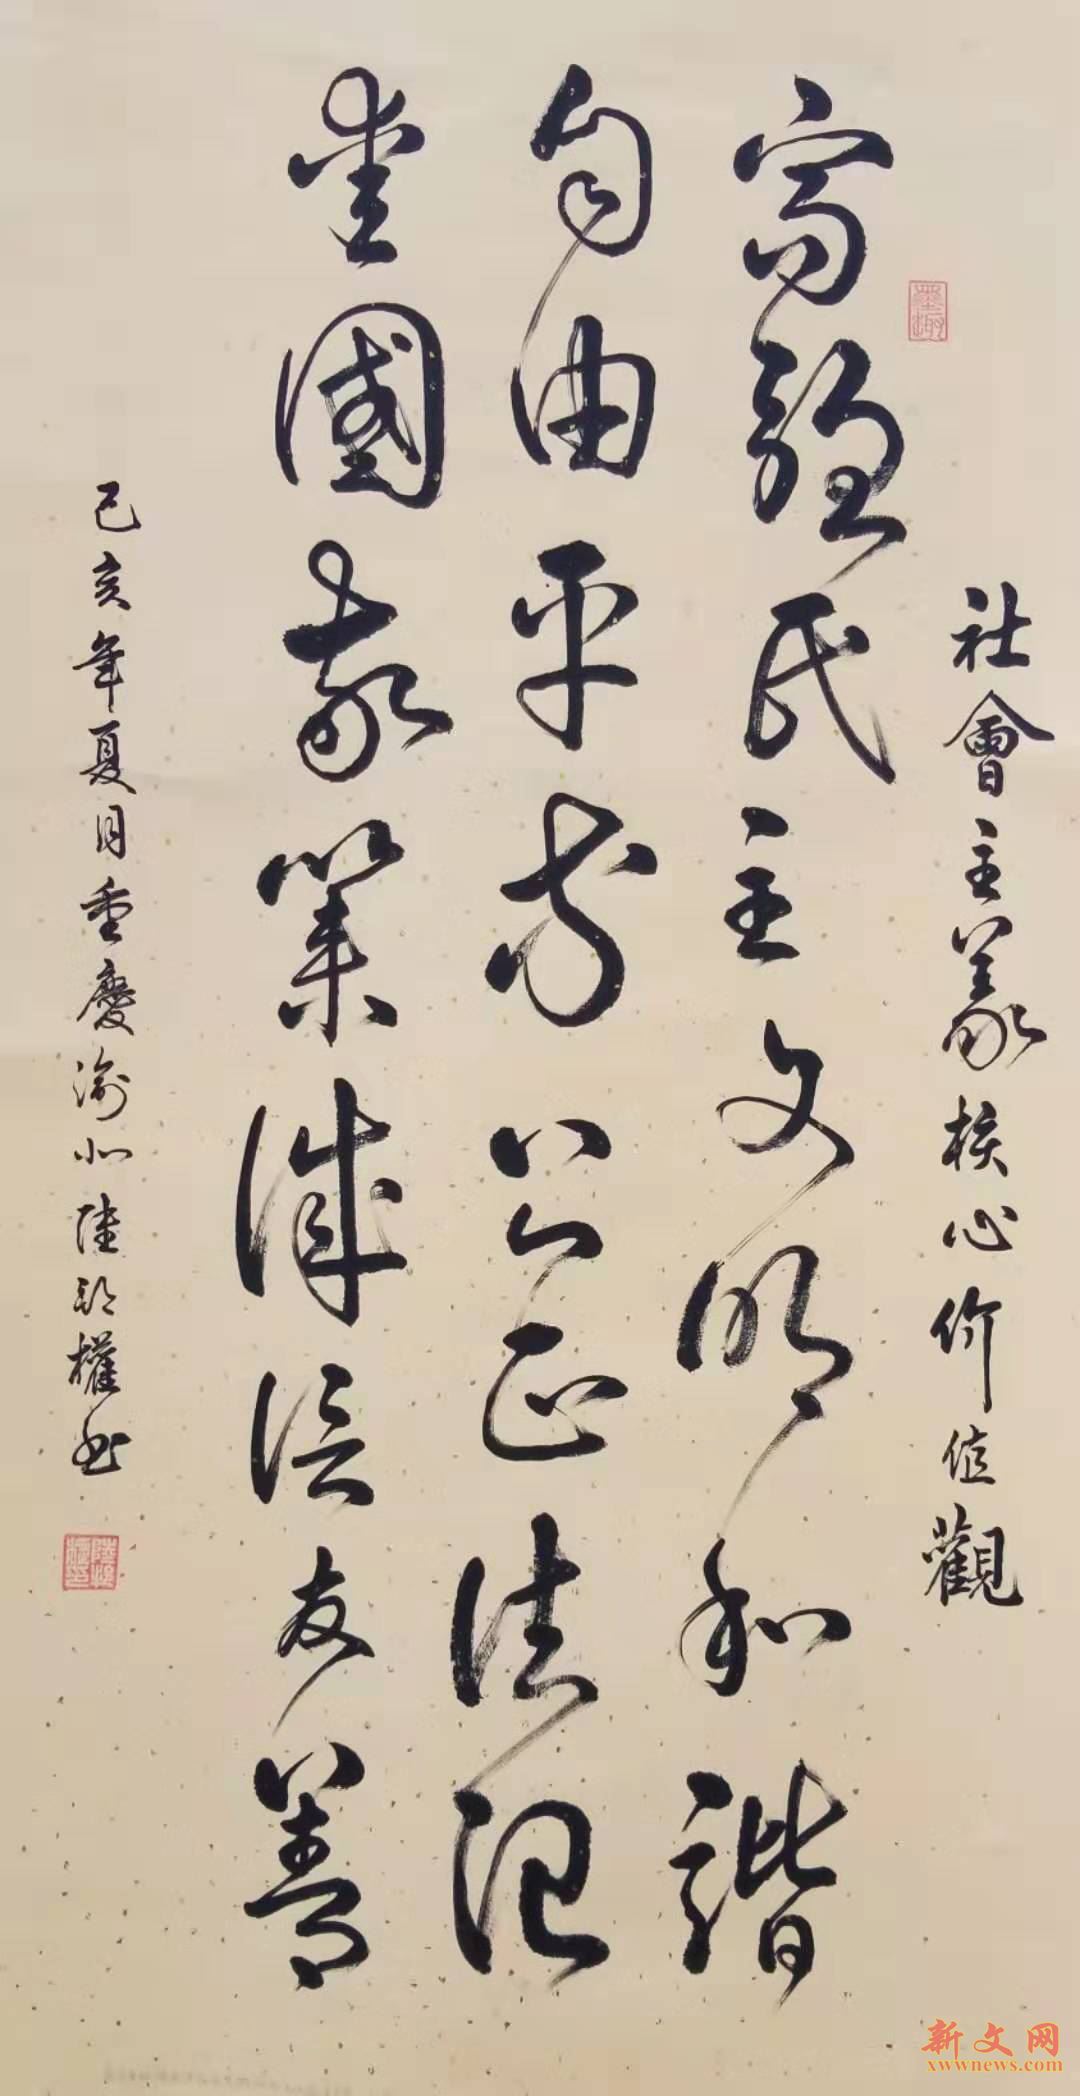 墨趣
社會主義核心价值觀
富强民主文明和諧
自由平等公正法治
愛國敬業誠信友善
己亥年夏月重慶渝北陸權书
新文网
xwwnews.com